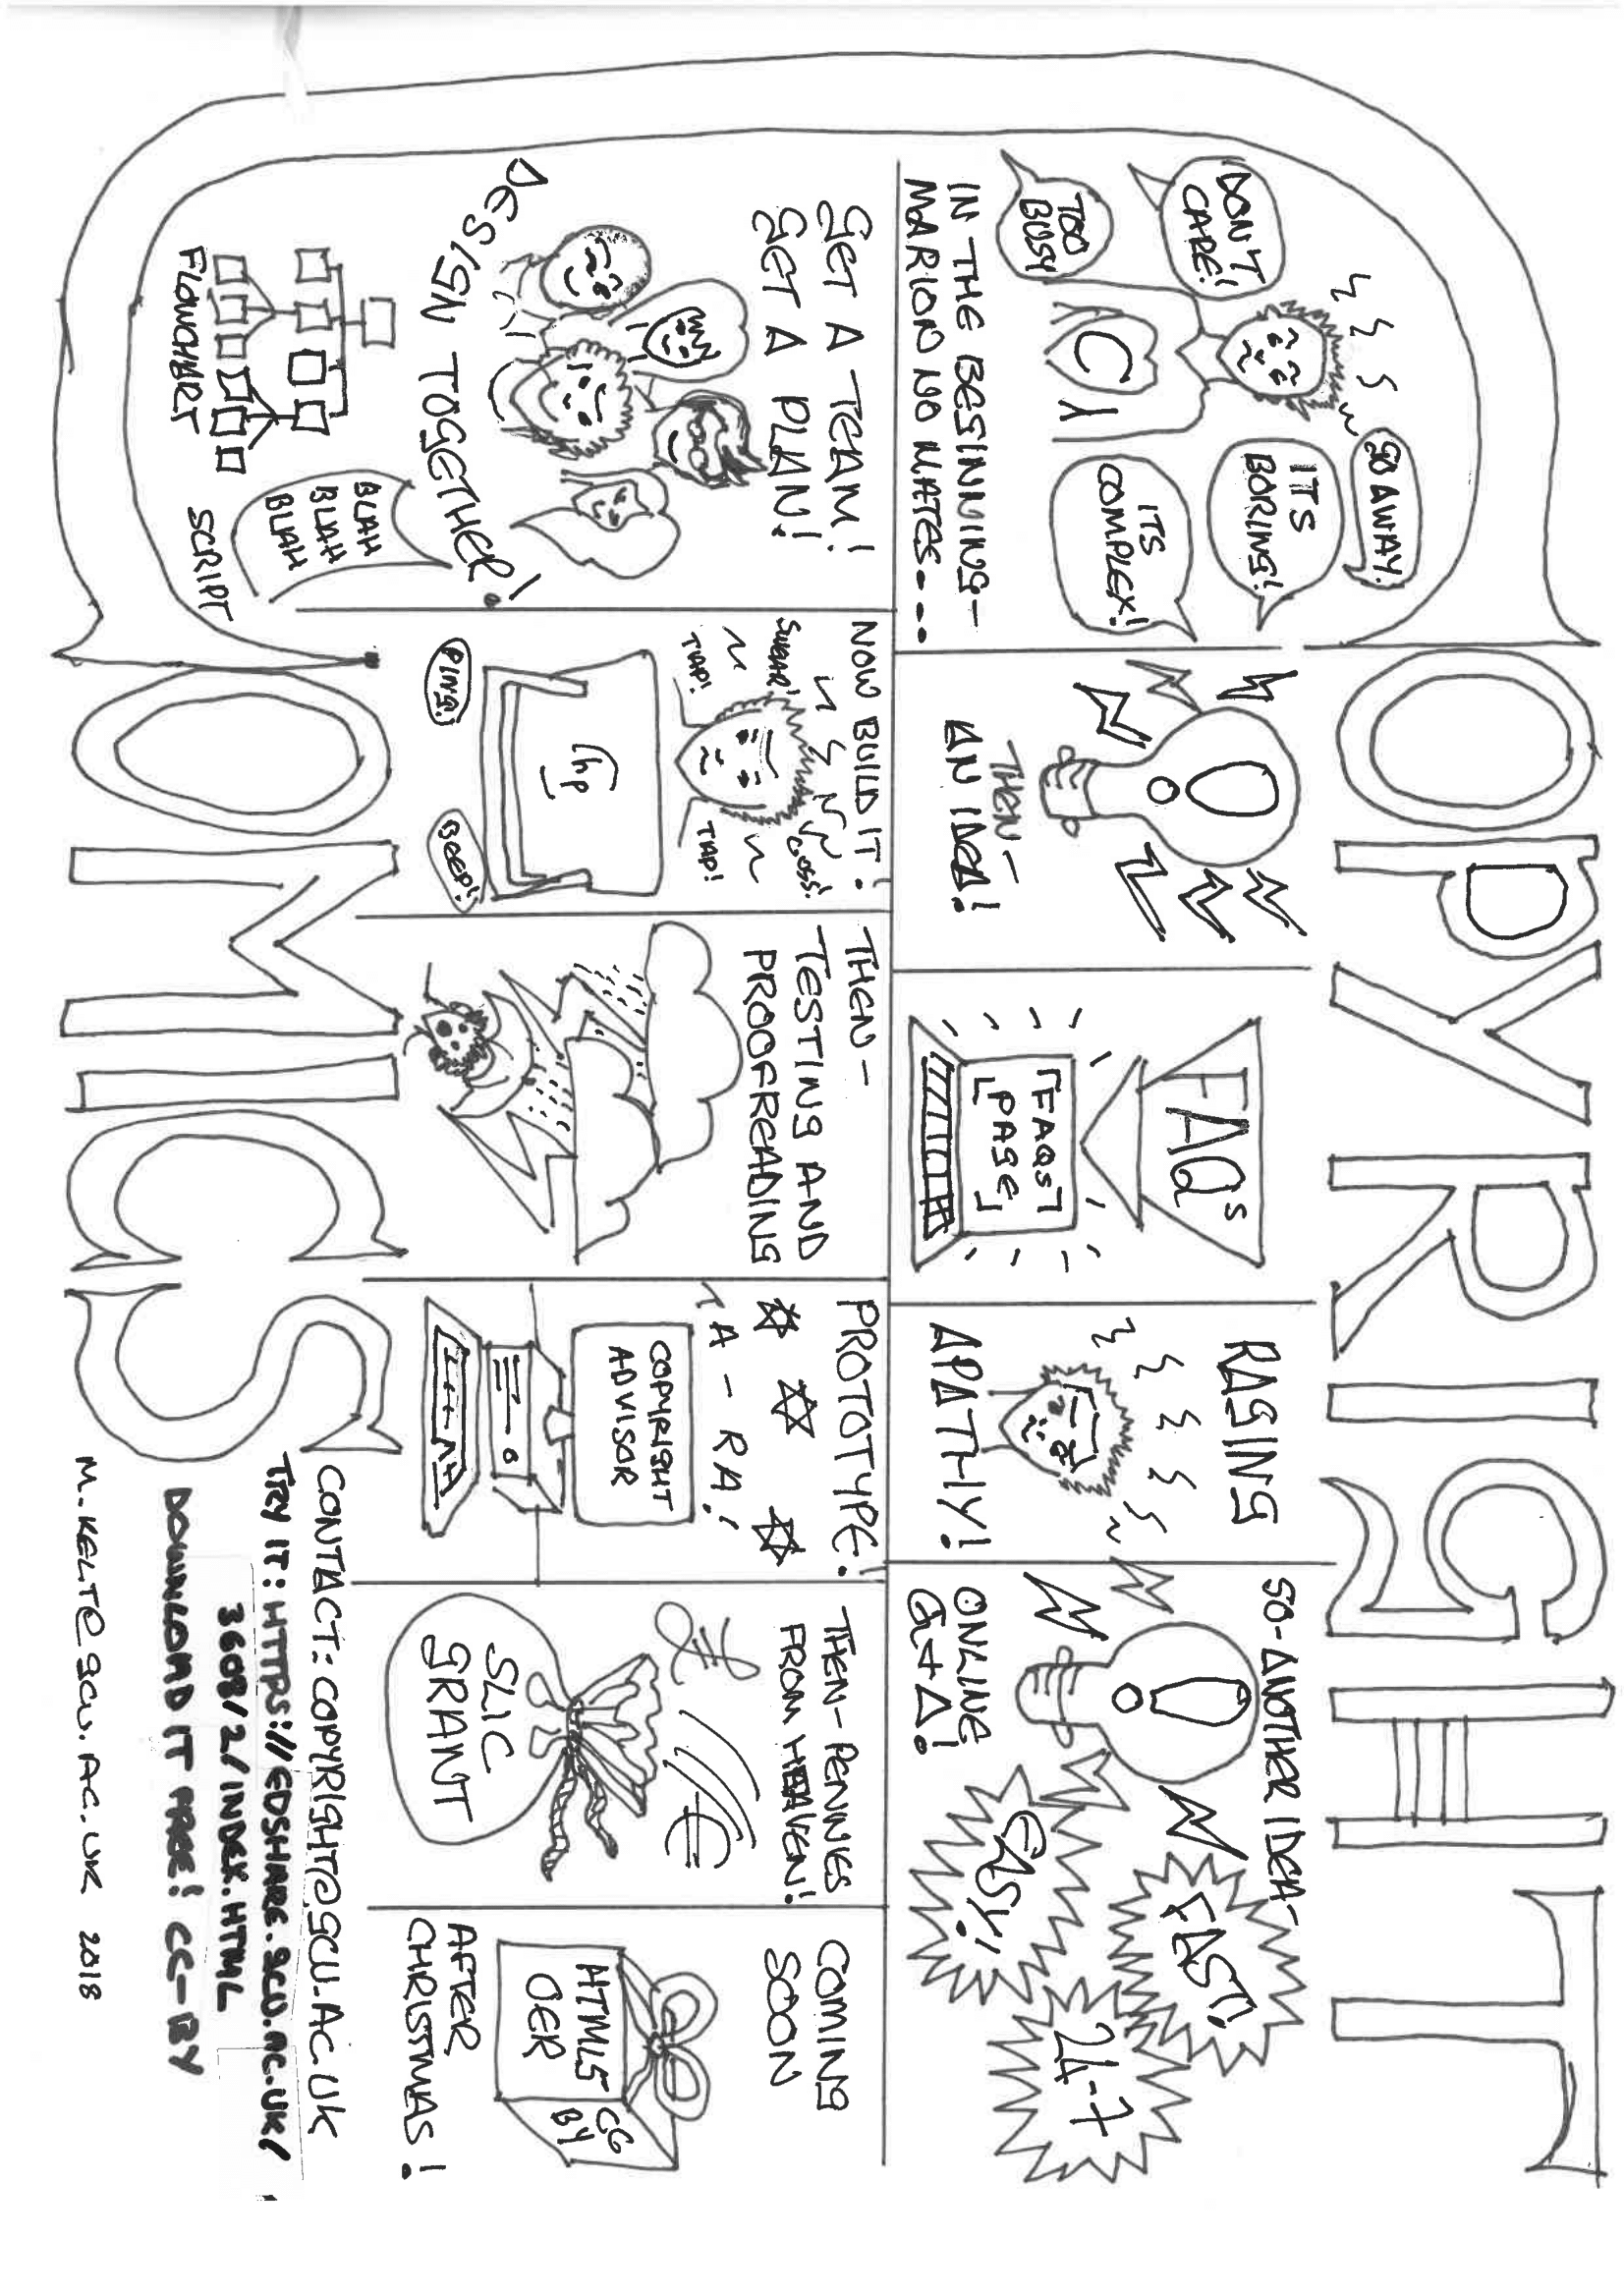 COPYRIGHT
DON'T
CARE!
TOO
BUSY
GO AWAY.
ITS
BORING!
ITS
COMPLEX!
C
IN THE BEGINNING-
MARION NO MATES---
THEN-
AN IDEA!
FAQs
[FAQs]
[PAGE]
RAGING
APATHY!
SO-ANOTHER IDEA-
FAST!
EASY!
24-7
ONLINE
Q+A!
GET A TEAM!
GET A PLAN!
DESIGN TOGETHER!
FLOWCHART
BLAH
BLAH
BLAH
SCRIPT
NOW BUILD IT!
SWEAR!
CUSS!
TAP!
TAP!
hp
PING!
BEEP!
THEN-
TESTING AND
PROOFREADING
PROTOTYPE!
TA-RA!
COPYRIGHT
ADVISOR
THEN-PENNIES
FROM HEAVEN!
£
€
SLIC
GRANT
COMING
SOON
HTML5
OER
CC
BY
AFTER
CHRISTMAS!
COMICS
CONTACT: COPYRIGHT@GCU.AC.UK
TRY IT: HTTPS://EDSHARE.GCU.AC.UK/
3608/2/INDEX.HTML
DOWNLOAD IT FREE! CC-BY
M.KELT@GCU.AC.UK 2018